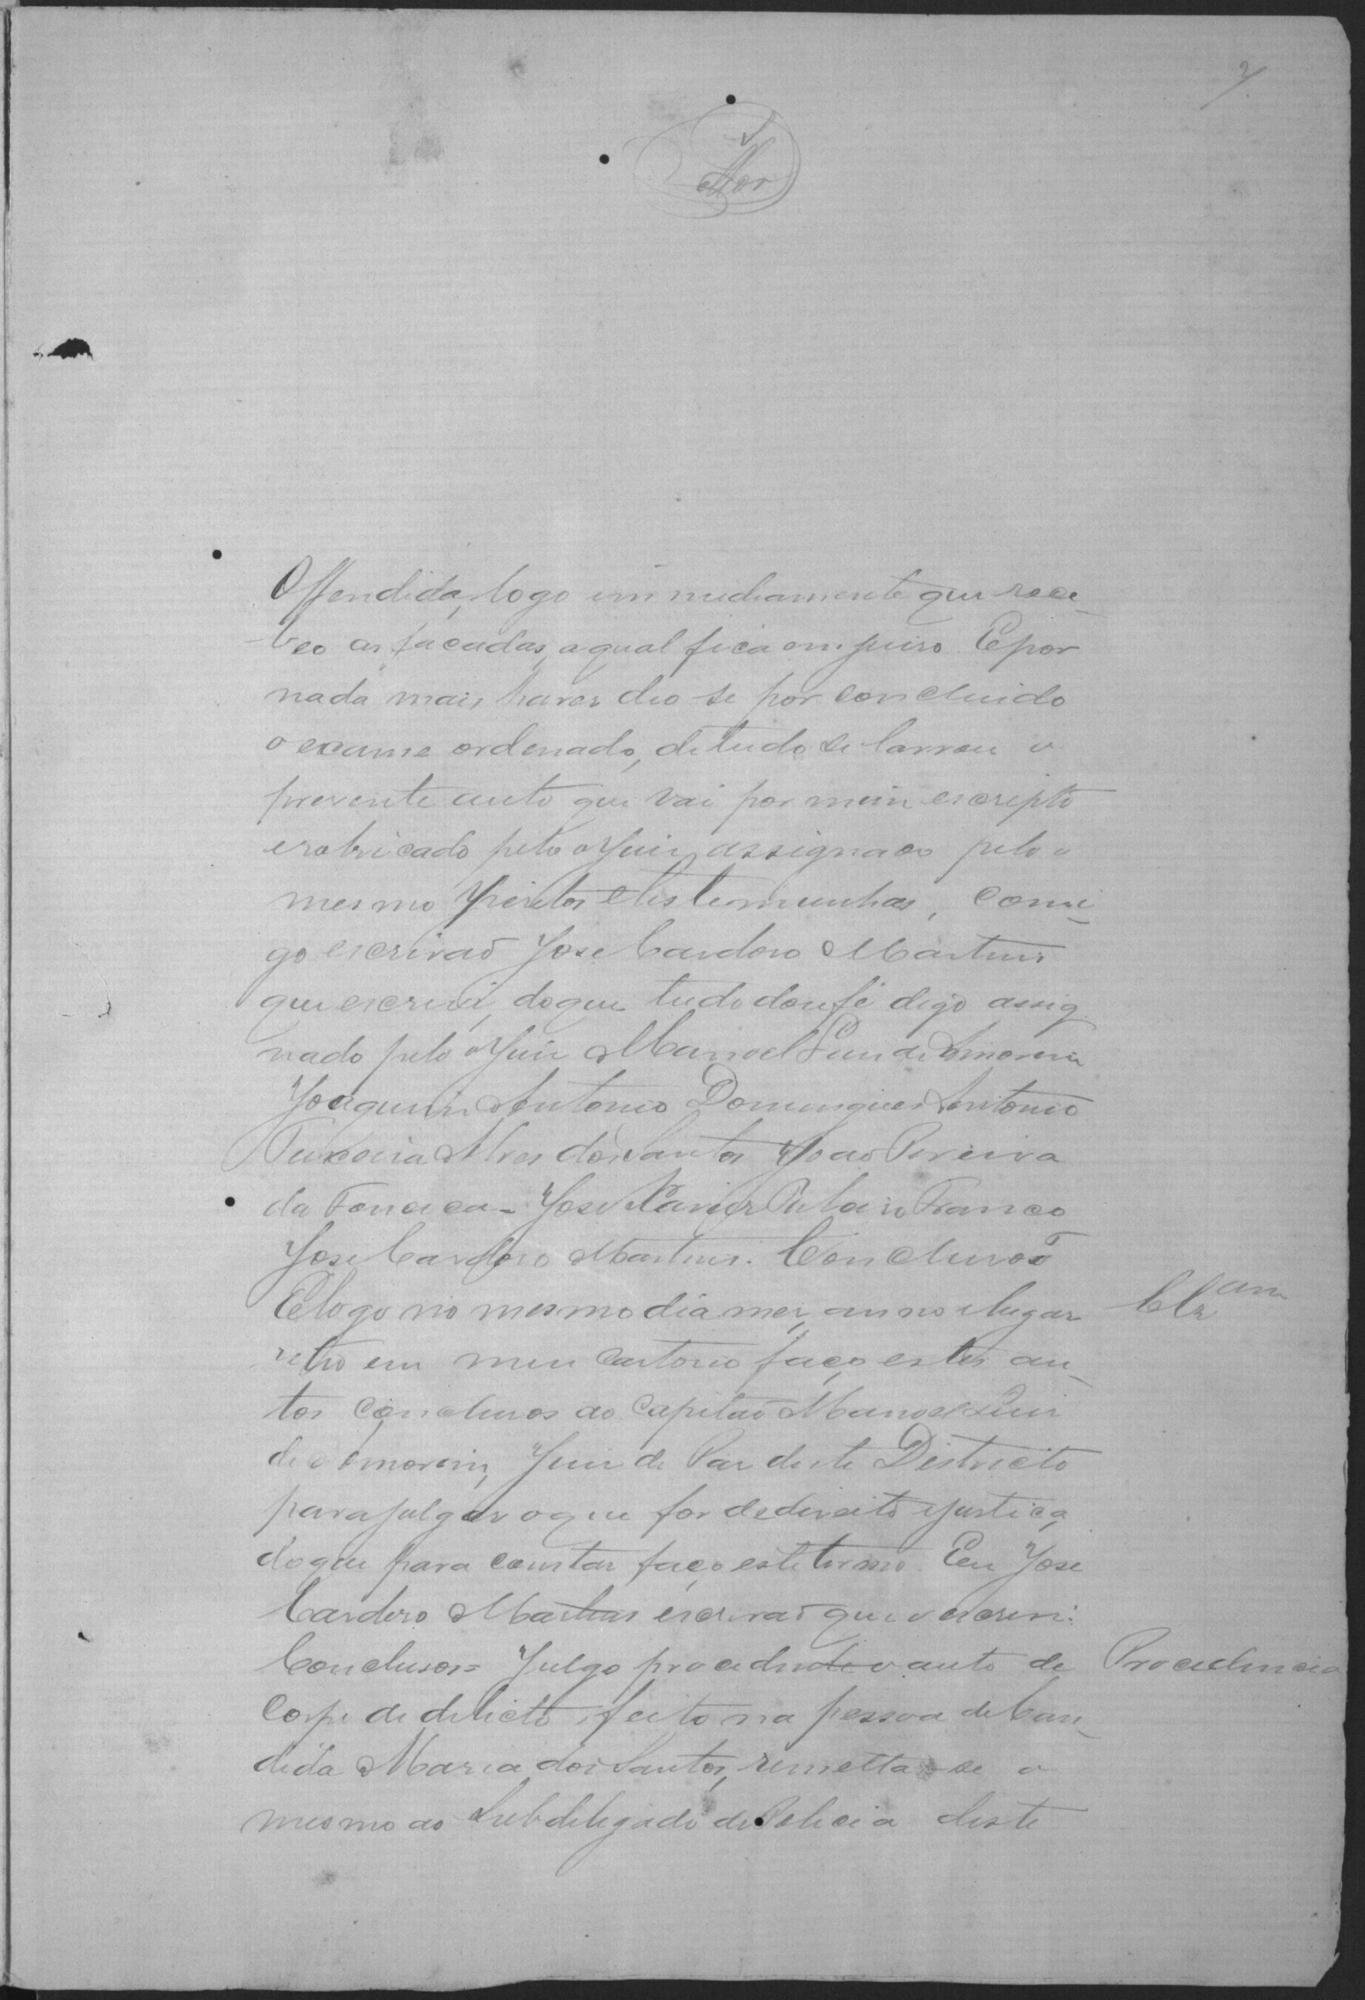 2
Offendida, logo immediamente que rece-
beo as facadas, a qual fica em juiso. E por
nada mais haver deo-se por concluido
o exame ordenado, de tudo se lavrou o
presente auto que vai por mim escripto
e rubricado pelo o Juiz, assignado pelo o
mesmo peritos e testemunhas, comi-
go escrivaõ Jose Cardoso Martins
que escrevi, do que tudo dou fé digo assig
nado pelo o Juiz Manoel Luiz de Amorim
Joaquim Antonio Domingues Antonio
Teixeira Alves dos Santos Joaõ Pereira
da Fonceca - Jose Xavier Franco
Jose Cardoso Martins. Conclusaõ
E logo no mesmo dia mez, anno e lugar
retro em meu Cartorio faço estes au-
tos conclusos ao Capitaõ Manoel Luiz
de Amorim, Juiz de Paz deste Districto
para julgar o que for de direito e justiça,
do que para constar faço este termo. Eu Jose
Cardoso Martins escrivaõ que o escrevi.
Conclusos = Julgo procedente o auto de
Corpo de delicto feito na pessoa de Can-
dida Maria dos Santos, remetta-se o
mesmo ao Subdelegado de Policia deste
Clzam
Procedencia